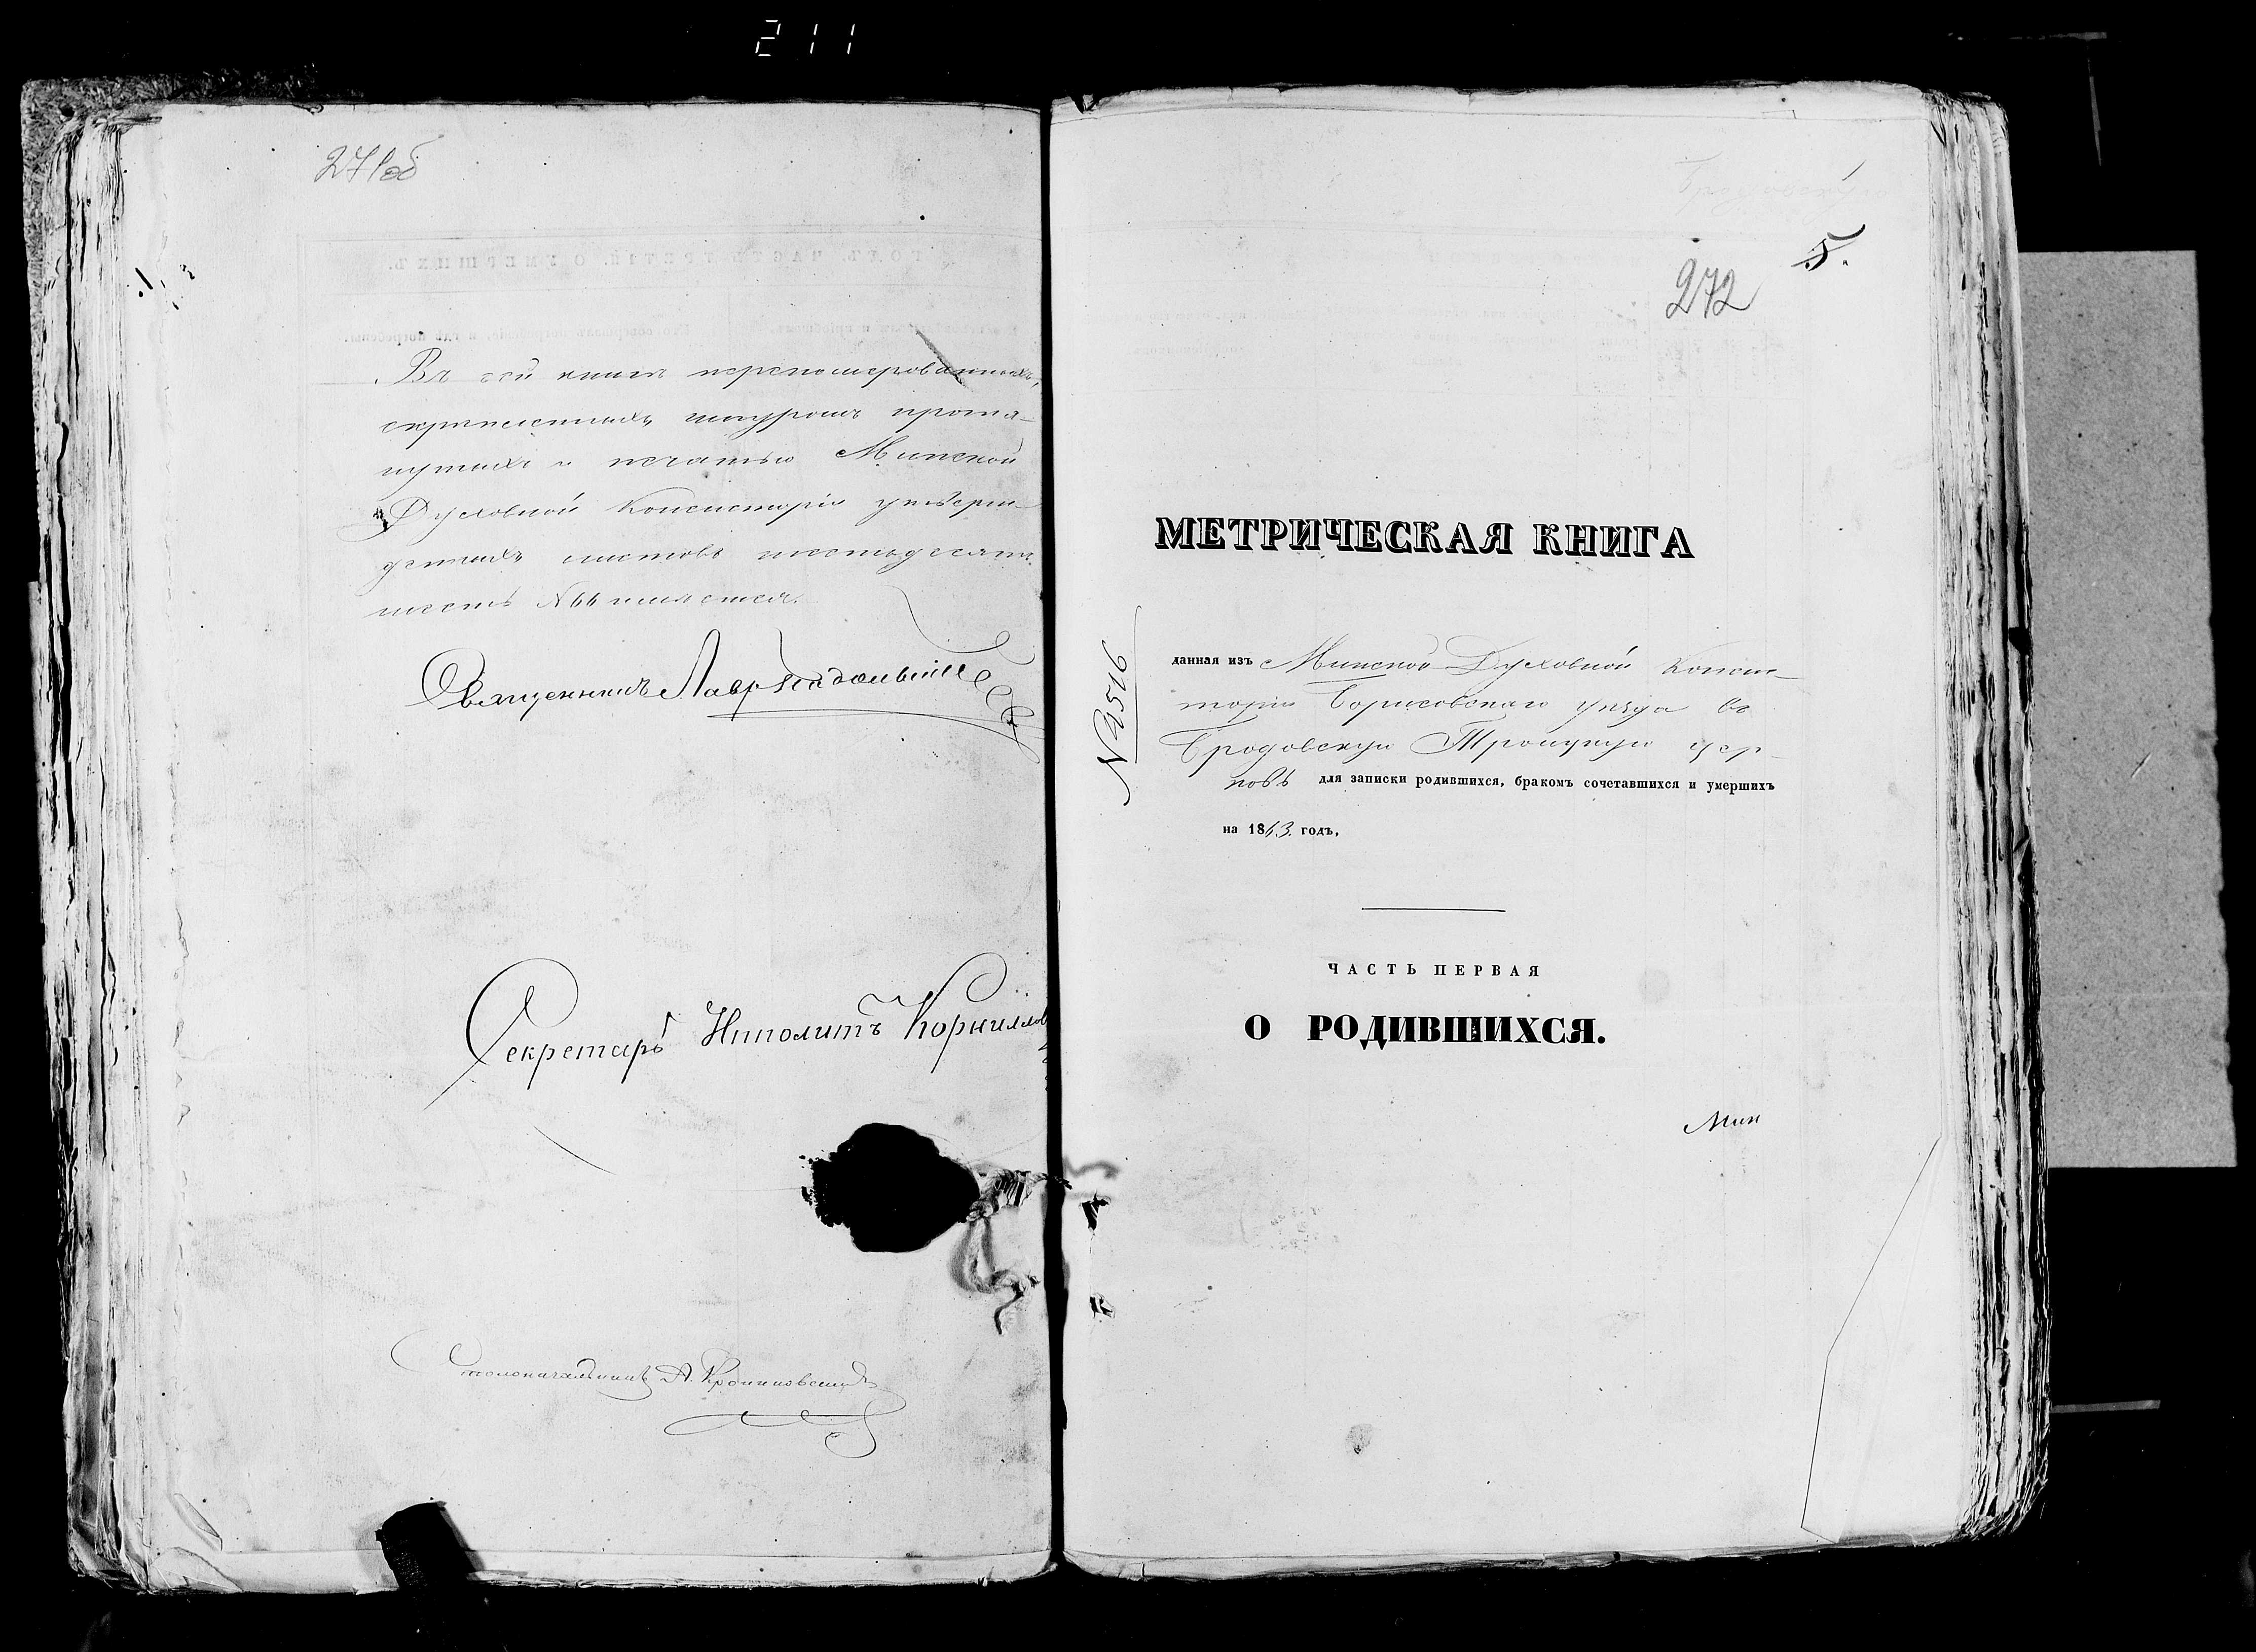 211
271об
Въ сей книгѣ перенумерованныхъ,
скрѣпленныхъ шнуромъ протя-
нутыхъ и печатью Минской
Духовной Консисторіи утверж-
денныхъ листовъ шестьдесятъ
шесть №66 имѣется.
Священникъ Лавр
Секретарь Иполитъ Корнилов
Столоначальникъ А.
Бродовскую
5.
272
МЕТРИЧЕСКАЯ КНИГА
№4516
данная изъ Минской Духовной Консис-
торіи Борисовскаго уѣзда въ
Бродовскую Троицкую цер-
ковь для записки родившихся, бракомъ сочетавшихся и умершихъ
на 1863. годъ,
ЧАСТЬ ПЕРВАЯ
О РОДИВШИХСЯ.
Мин